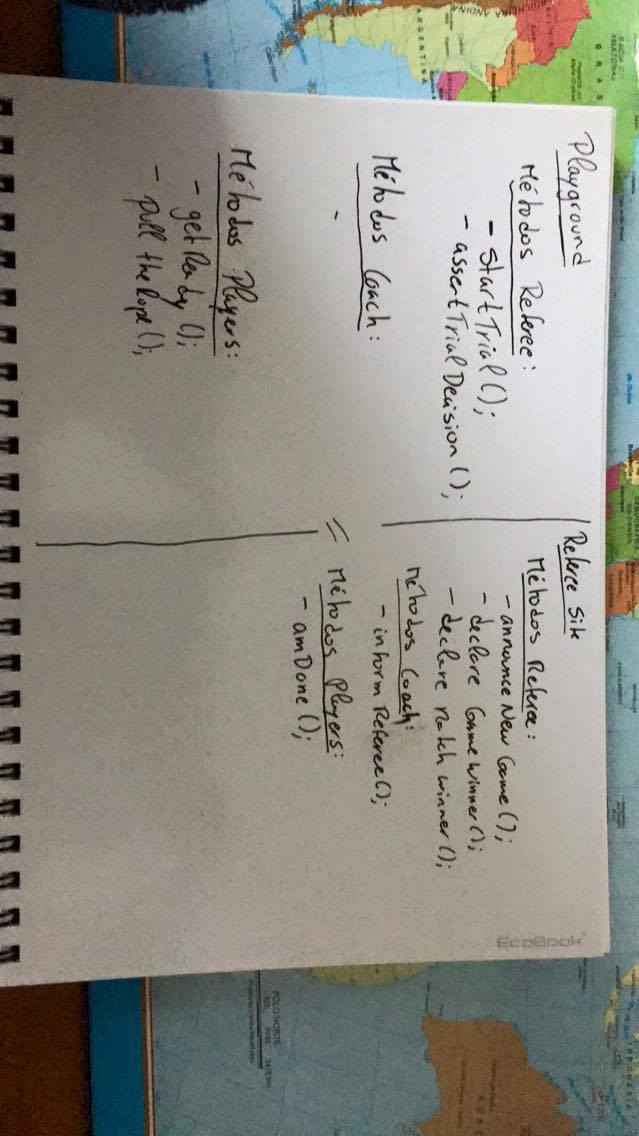 Playground
Métodos Referee:
- StartTrial();
- assertTrialDecision();
Métodos Coach:
-
Métodos Players:
- getReady();
- pull the Rope();
Referee Site
Métodos Referee:
- announce New Game();
- declare Game winner();
- declare Match winner();
Métodos Coach:
- inform Referee();
= Métodos Players:
- amDone();
EcoBook
ARGENTINA
POLO NORTE